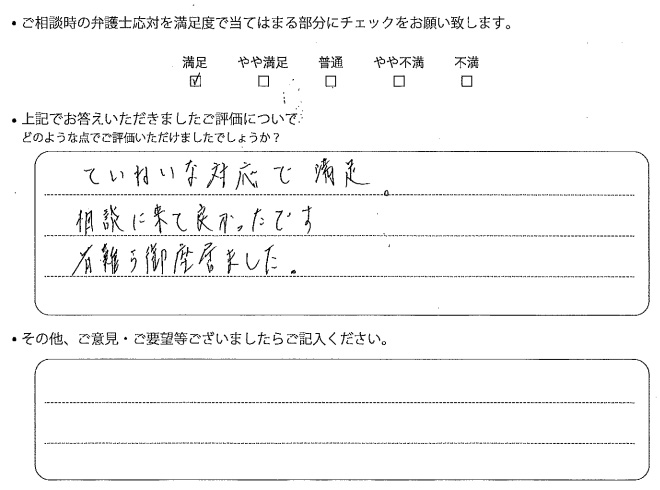 ・ご相談時の弁護士応対を満足度で当てはまる部分にチェックをお願い致します。
満足 やや満足 普通 やや不満 不満
☑ □ □ □ □
・上記でお答えいただきましたご評価について
どのような点でご評価いただけましたでしょうか？
ていねいな対応で満足。
相談に来て良かったです
有難う御座居ました。
・その他、ご意見・ご要望等ございましたらご記入ください。